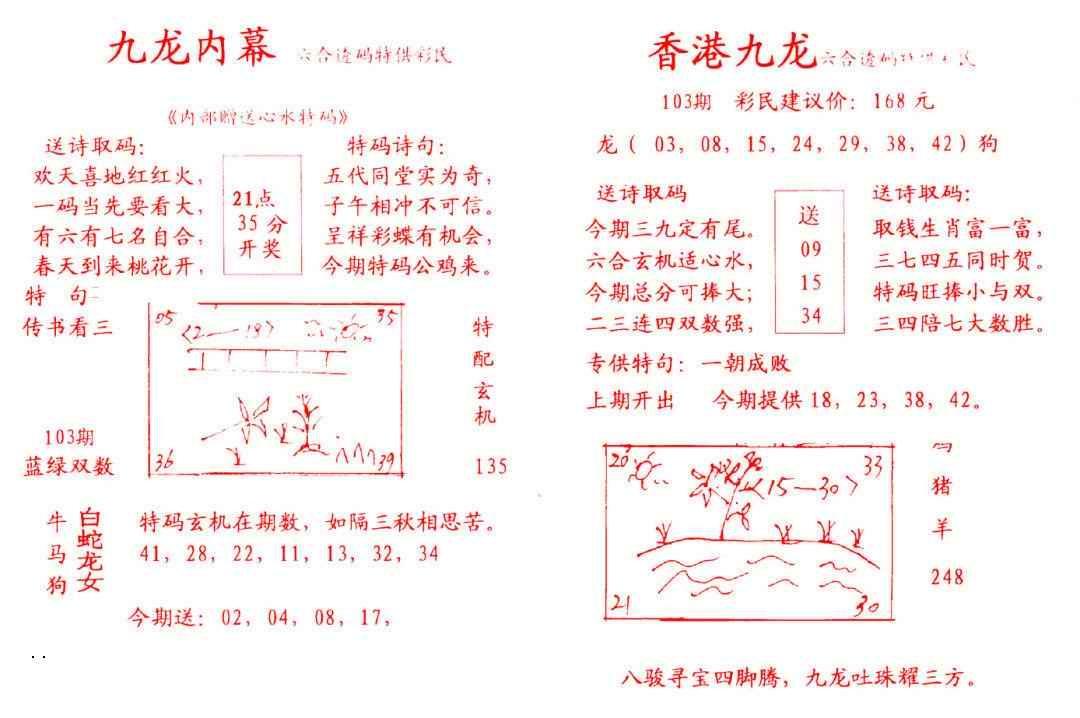 九龙内幕 六合透码特供彩民
《内部赠送心水特码》
送诗取码：
欢天喜地红红火，
一码当先要看大，
有六有七名自合，
春天到来桃花开，
21点
35分
开奖
特码诗句：
五代同堂实为奇，
子午相冲不可信。
呈祥彩蝶有机会，
今期特码公鸡来。
特 句
传书看三
103期
蓝绿双数
05
35
<2—18>
36
39
特
配
玄
机
135
牛
马
狗
白蛇龙女
特码玄机在期数，如隔三秋相思苦。
41，28，22，11，13，32，34
今期送：02，04，08，17，
香港九龙 六合透码
103期 彩民建议价：168元
龙（ 03，08，15，24，29，38，42）狗
送诗取码
今期三九定有尾。
六合玄机适心水，
今期总分可捧大；
二三连四双数强，
送
09
15
34
送诗取码：
取钱生肖富一富，
三七四五同时贺。
特码旺捧小与双。
三四陪七大数胜。
专供特句：一朝成败
上期开出 今期提供18，23，38，42。
20
33
<15—30>
21
30
猪
羊
248
八骏寻宝四脚腾，九龙吐珠耀三方。